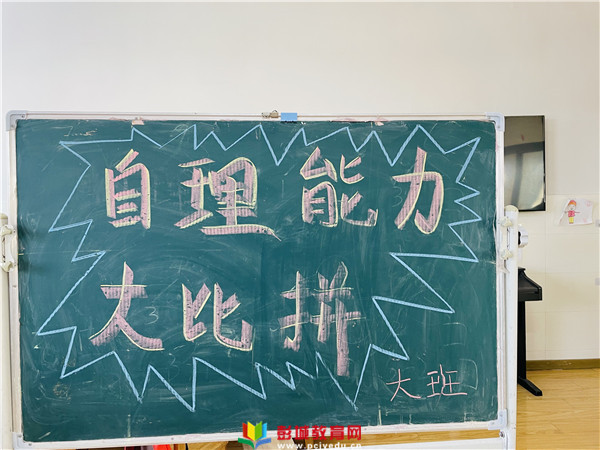 自理能力
大比拼
大班
彭城教育网
www.pcjyedu.cn